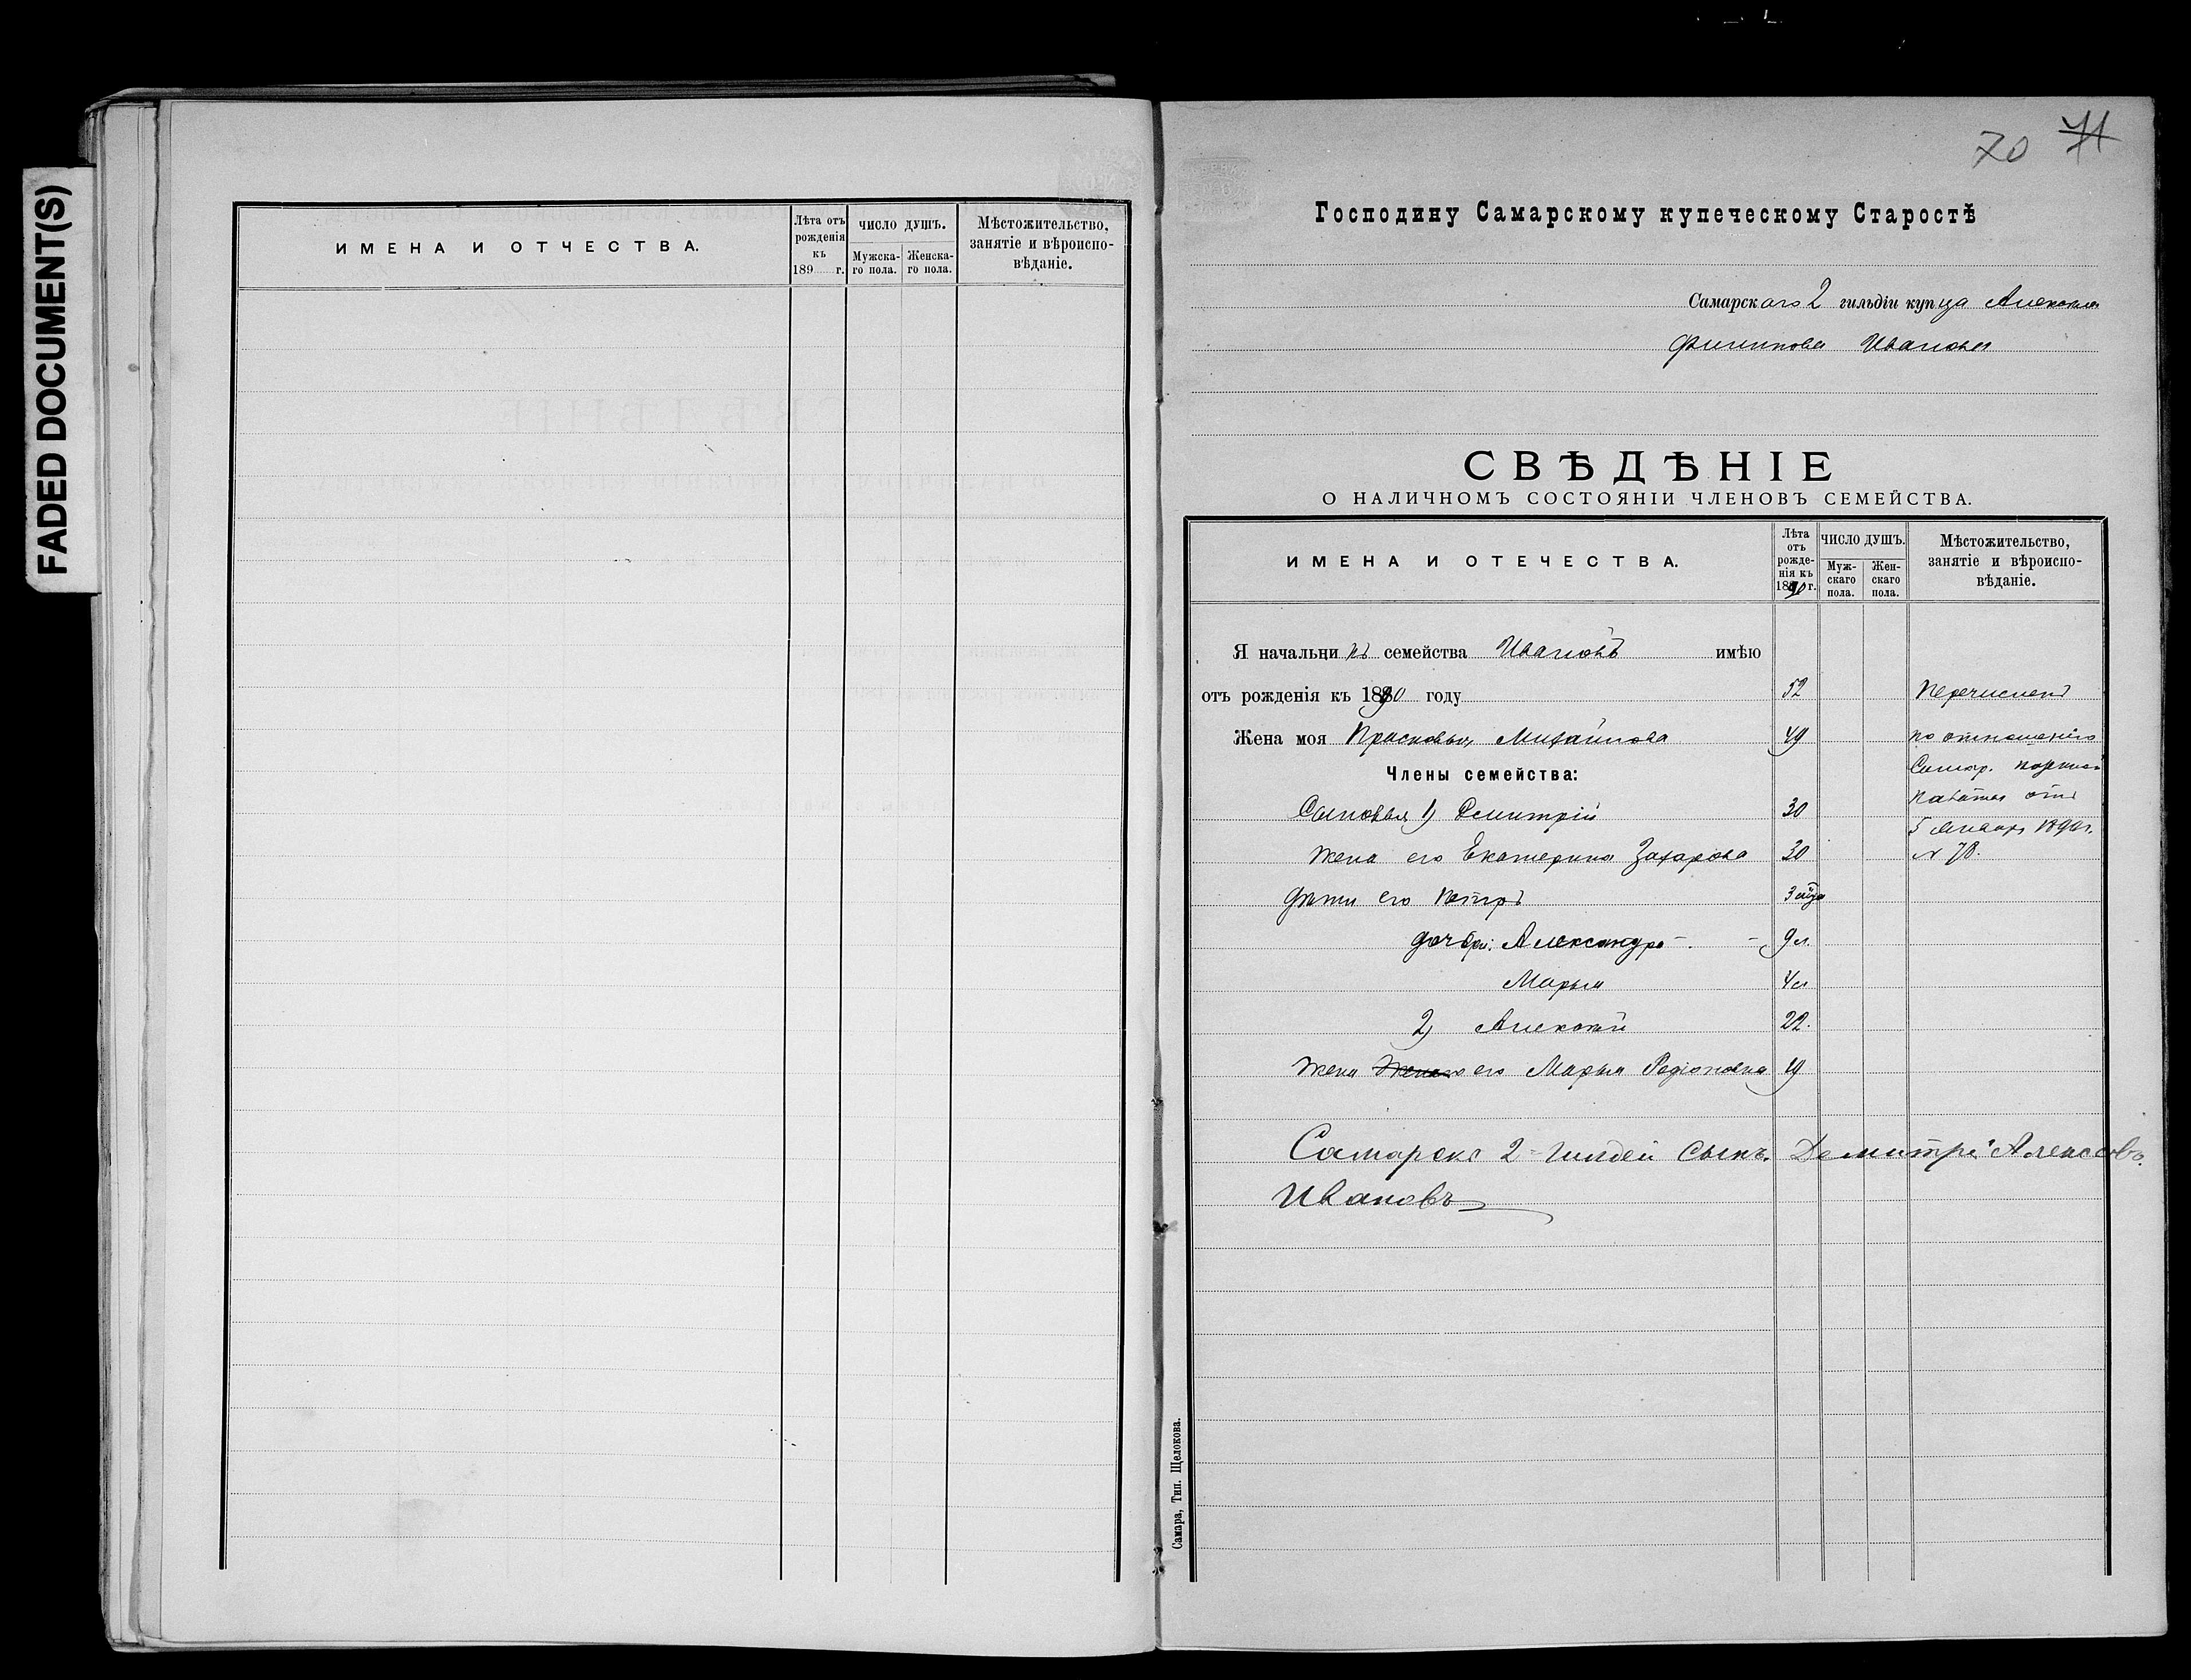 FADED DOCUMENT(S)
ИМЕНА И ОТЧЕСТВА.
Лѣта отъ
рожденія
къ
189 г.
ЧИСЛО ДУШЪ.
Мужска-
го пола.
Женска-
го пола.
Мѣстожительство,
занятіе и вѣроиспо-
вѣданіе.
70 71
Господину Самарскому купеческому Старостѣ
Самарскаго 2 гильдіи купца Алексѣя
Филипова Иванова
СВѢДѢНІЕ
О НАЛИЧНОМЪ СОСТОЯНІИ ЧЛЕНОВЪ СЕМЕЙСТВА.
ИМЕНА И ОТЕЧЕСТВА.
Лѣта
отъ
рожде-
нія къ
1890 г.
ЧИСЛО ДУШЪ.
Муж-
скаго
пола.
Жен-
скаго
пола.
Мѣстожительство,
занятіе и вѣроиспо-
вѣданіе.
Я начальникъ семейства Ивановъ имѣю
отъ рожденія къ 1890 году 52 Перечисленъ
Жена моя Прасковья Михайлова 49 по отношенію
Члены семейства: Самар. Казенной
Палаты отъ
Сыновья 1) Дмитрій 30
5 Января 1890 г.
жена его Екатерина Захарова 30 № 78.
Дѣти его Петръ 3 мѣся
дочери: Александра - 9 л.
Марья 4 л
2) Алексѣй 22.
Жена Жена его Марья Родіоновна 19
Самарскi 2 гилдей Сынъ. Демитрiй Алексевъ
Ивановъ
Самара, Тип. Щелокова.